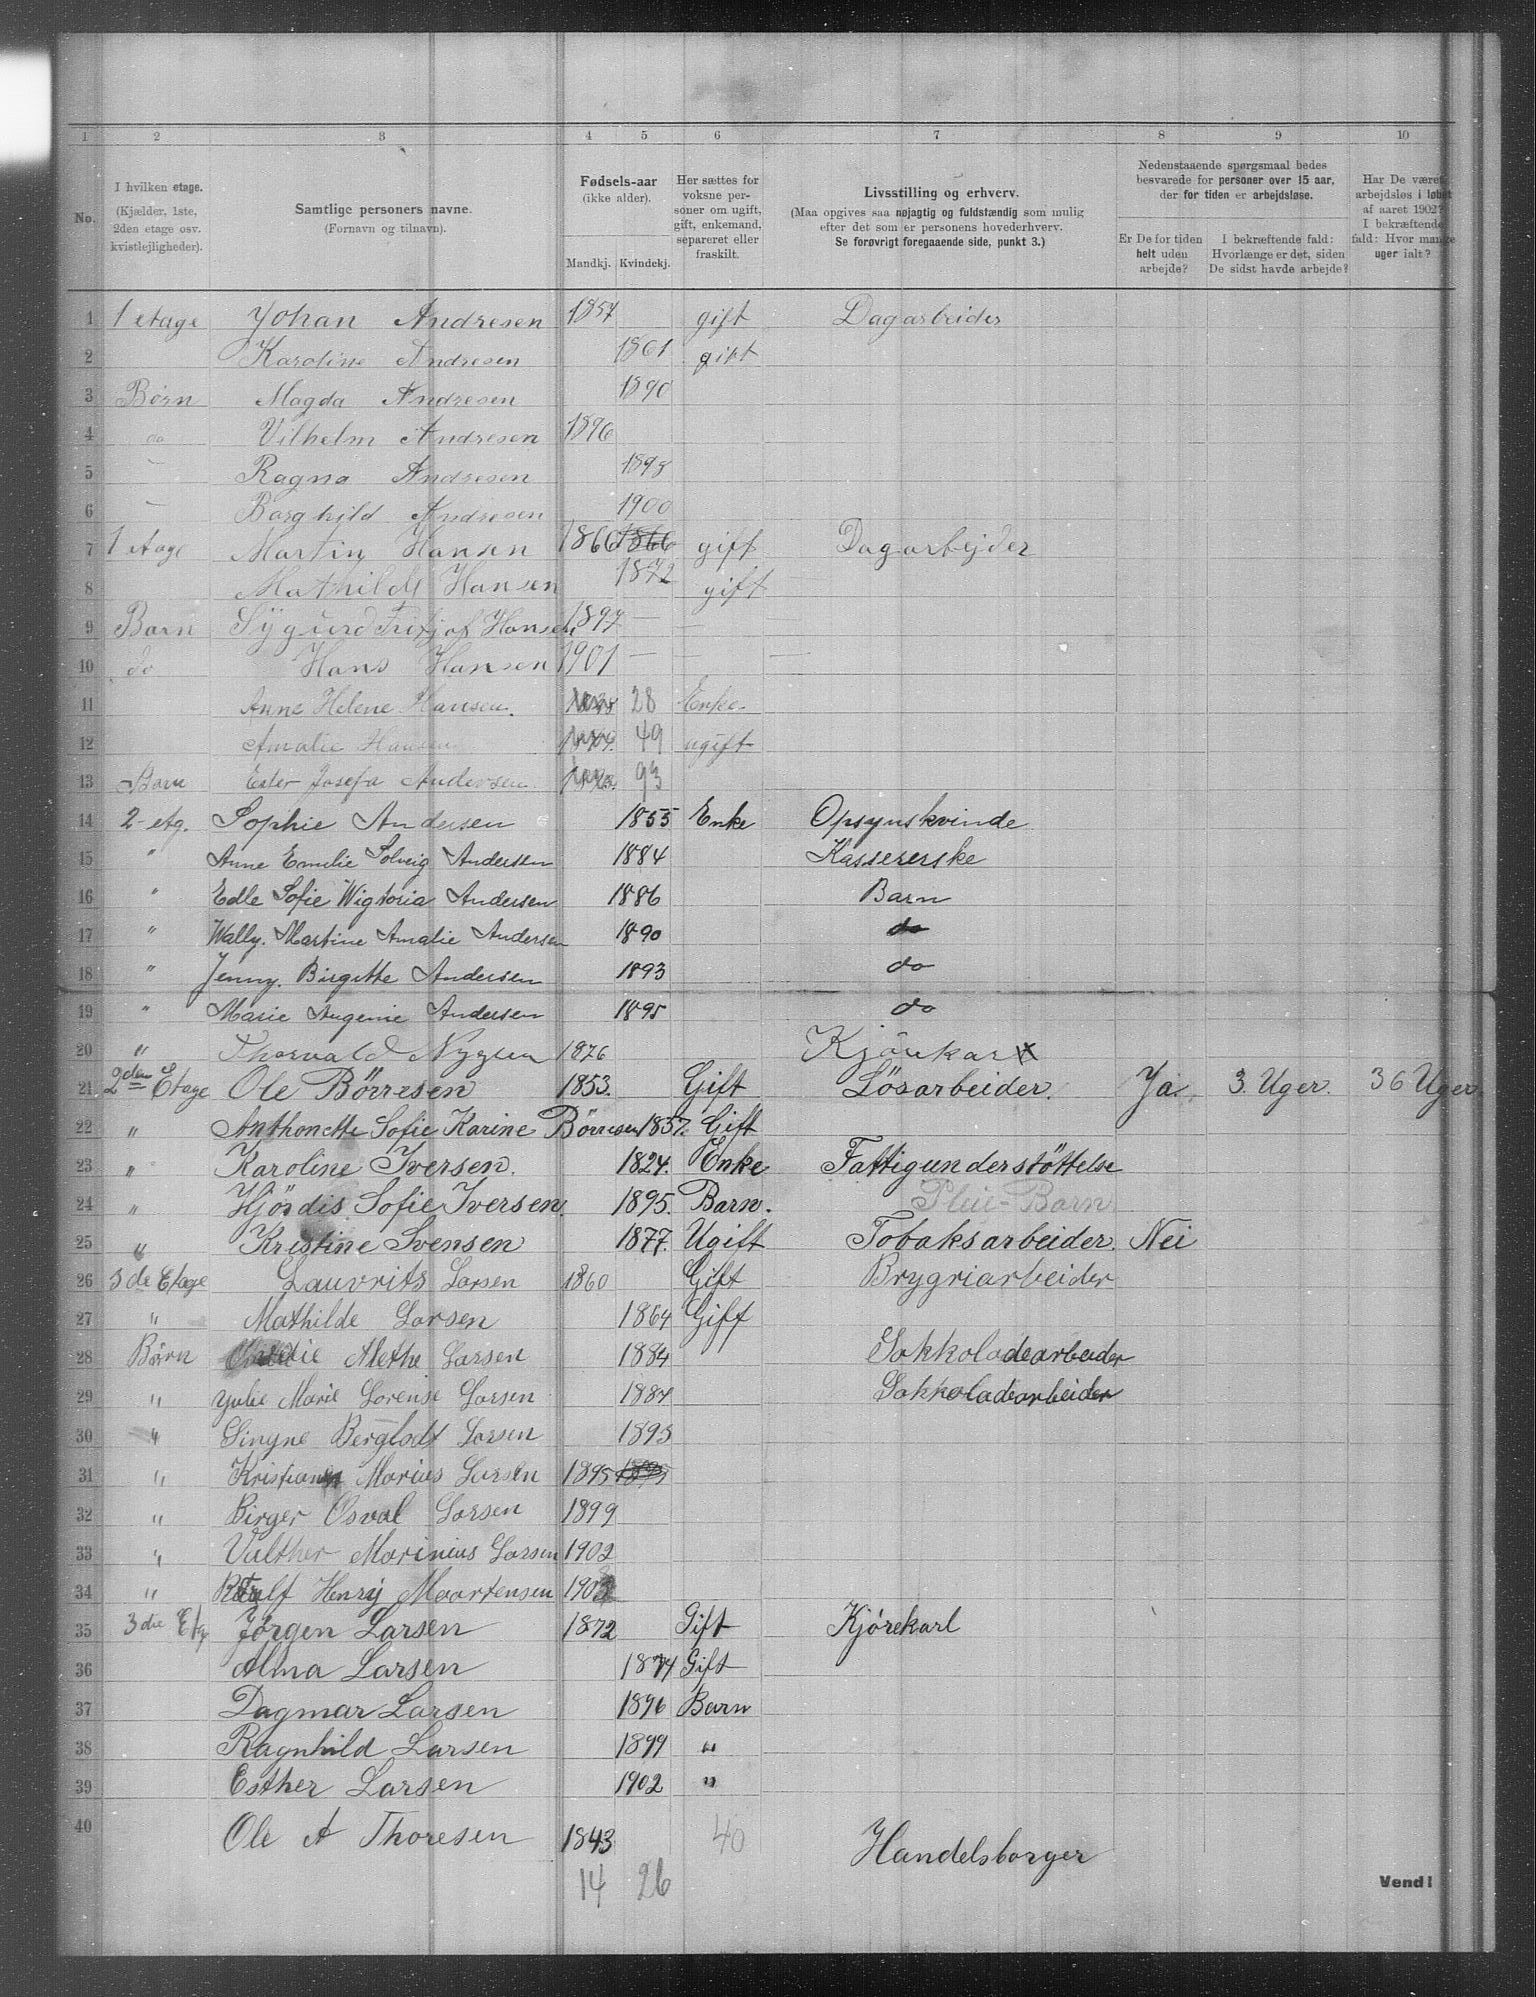 1 2 3 4 5 6 7 8 9 10
No.
I hvilken etage. (Kjælder, 1ste, 2den etage osv. kvistlejligheder).
Samtlige personers navne. (Fornavn og tilnavn).
Fødsels-aar (ikke alder). Mandkj. Kvindekj.
Her sættes for voksne personer om ugift, gift, enkemand, separeret eller fraskilt.
Livsstilling og erhverv. (Maa opgives saa nøjagtig og fuldstændig som mulig efter det som er personens hovederhverv. Se forøvrigt foregaaende side, punkt 3.)
Nedenstaaende spørgsmaal bedes besvarede for personer over 15 aar, der for tiden er arbejdsløse.
Er De for tiden helt uden arbejde?
I bekræftende fald: Hvorlænge er det, siden De sidst havde arbejde?
Har De været arbejdsløs i løbet af aaret 1902? I bekræftende fald: Hvor mange uger ialt?
1 1 etage Johan Andresen 1857 gift Dagarbeider
2 Karoline Andresen 1861 gift
3 Børn Magda Andresen 1890
4 do Vilhelm Andresen 1896
5 – Ragna Andresen 1898
6 – Borghild Andresen 1900
7 1 etage Martin Hansen 1866 1866 gift Dagarbejder
8 Mathilde Hansen 1872 gift
9 Barn Sygurd Fritjof Hansen 1897 — —
10 do Hans Hansen 1901 — — —
11 Anne Helene Hansen. 28 Enke
12 Amalie Hansen 49 ugift
13 Barn Ester Josefa Andersen 93
14 2 etg. Sophie Andersen 1855 Enke Opsynskvinde
15 " Anne Emilie Solveig Andersen 1884 Kassererske
16 " Edle Sofie Wigtoria Andersen 1886 Barn
17 " Wally. Martine Amalie Andersen 1890 do
18 " Jenny. Birgitte Andersen 1893 do
19 " Marie Augenie Andersen 1895 do
20 " Thorvald Nygren 1876 Kjörekar
21 2den Etage Ole Börresen 1853. Gift Lösarbeider. Ja. 3. Uger. 36 Uger
22 " Anthonette Sofie Karine Börresen 1857. Gift
23 " Karoline Iversen. 1824. Enke Fattigunderstöttelse
24 " Hjördis Sofie Iversen. 1895. Barn. Pleie-Barn
25 " Kristine Svensen 1877. Ugift Tobaksarbeider. Nei
26 3de Etage Lauvrits Larsen 1860 Gift Brygriarbeider
27 " Mathilde Larsen 1864 Gift
28 Børn Alethe Larsen 1884 Sokkoladearbeider
29 " Yulie Marie Lorense Larsen 1887 Sokkoladearbeider
30 " Singne Berglodt Larsen 1893
31 " Kristian Marius Larsen 1895 1895
32 " Birger Osval Larsen 1899
33 " Valther Marinius Larsen 1902
34 " Henry Maartensen 1902
35 3die Etg Jørgen Larsen 1872 Gift Kjørekarl
36 Alma Larsen 1874 Gift
37 Dagmar Larsen 1896 Barn
38 Ragnhild Larsen 1899 "
39 Esther Larsen 1902 "
40 Ole A Thoresen 1843 40 Handelsborger
14 26
Vend!